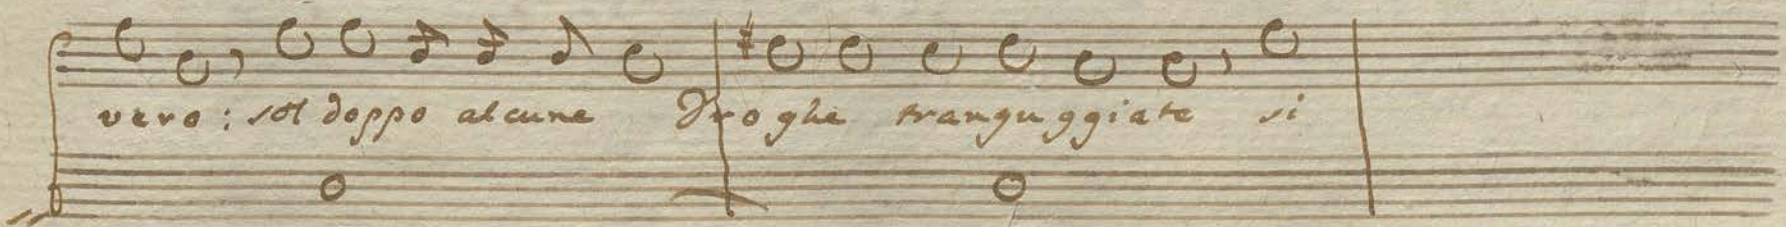 vero: sol doppo alcune Droghe tranguggiate si